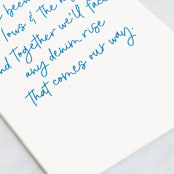 been
lows & the
nd together we'll fac
any denim rise
that comes our way.